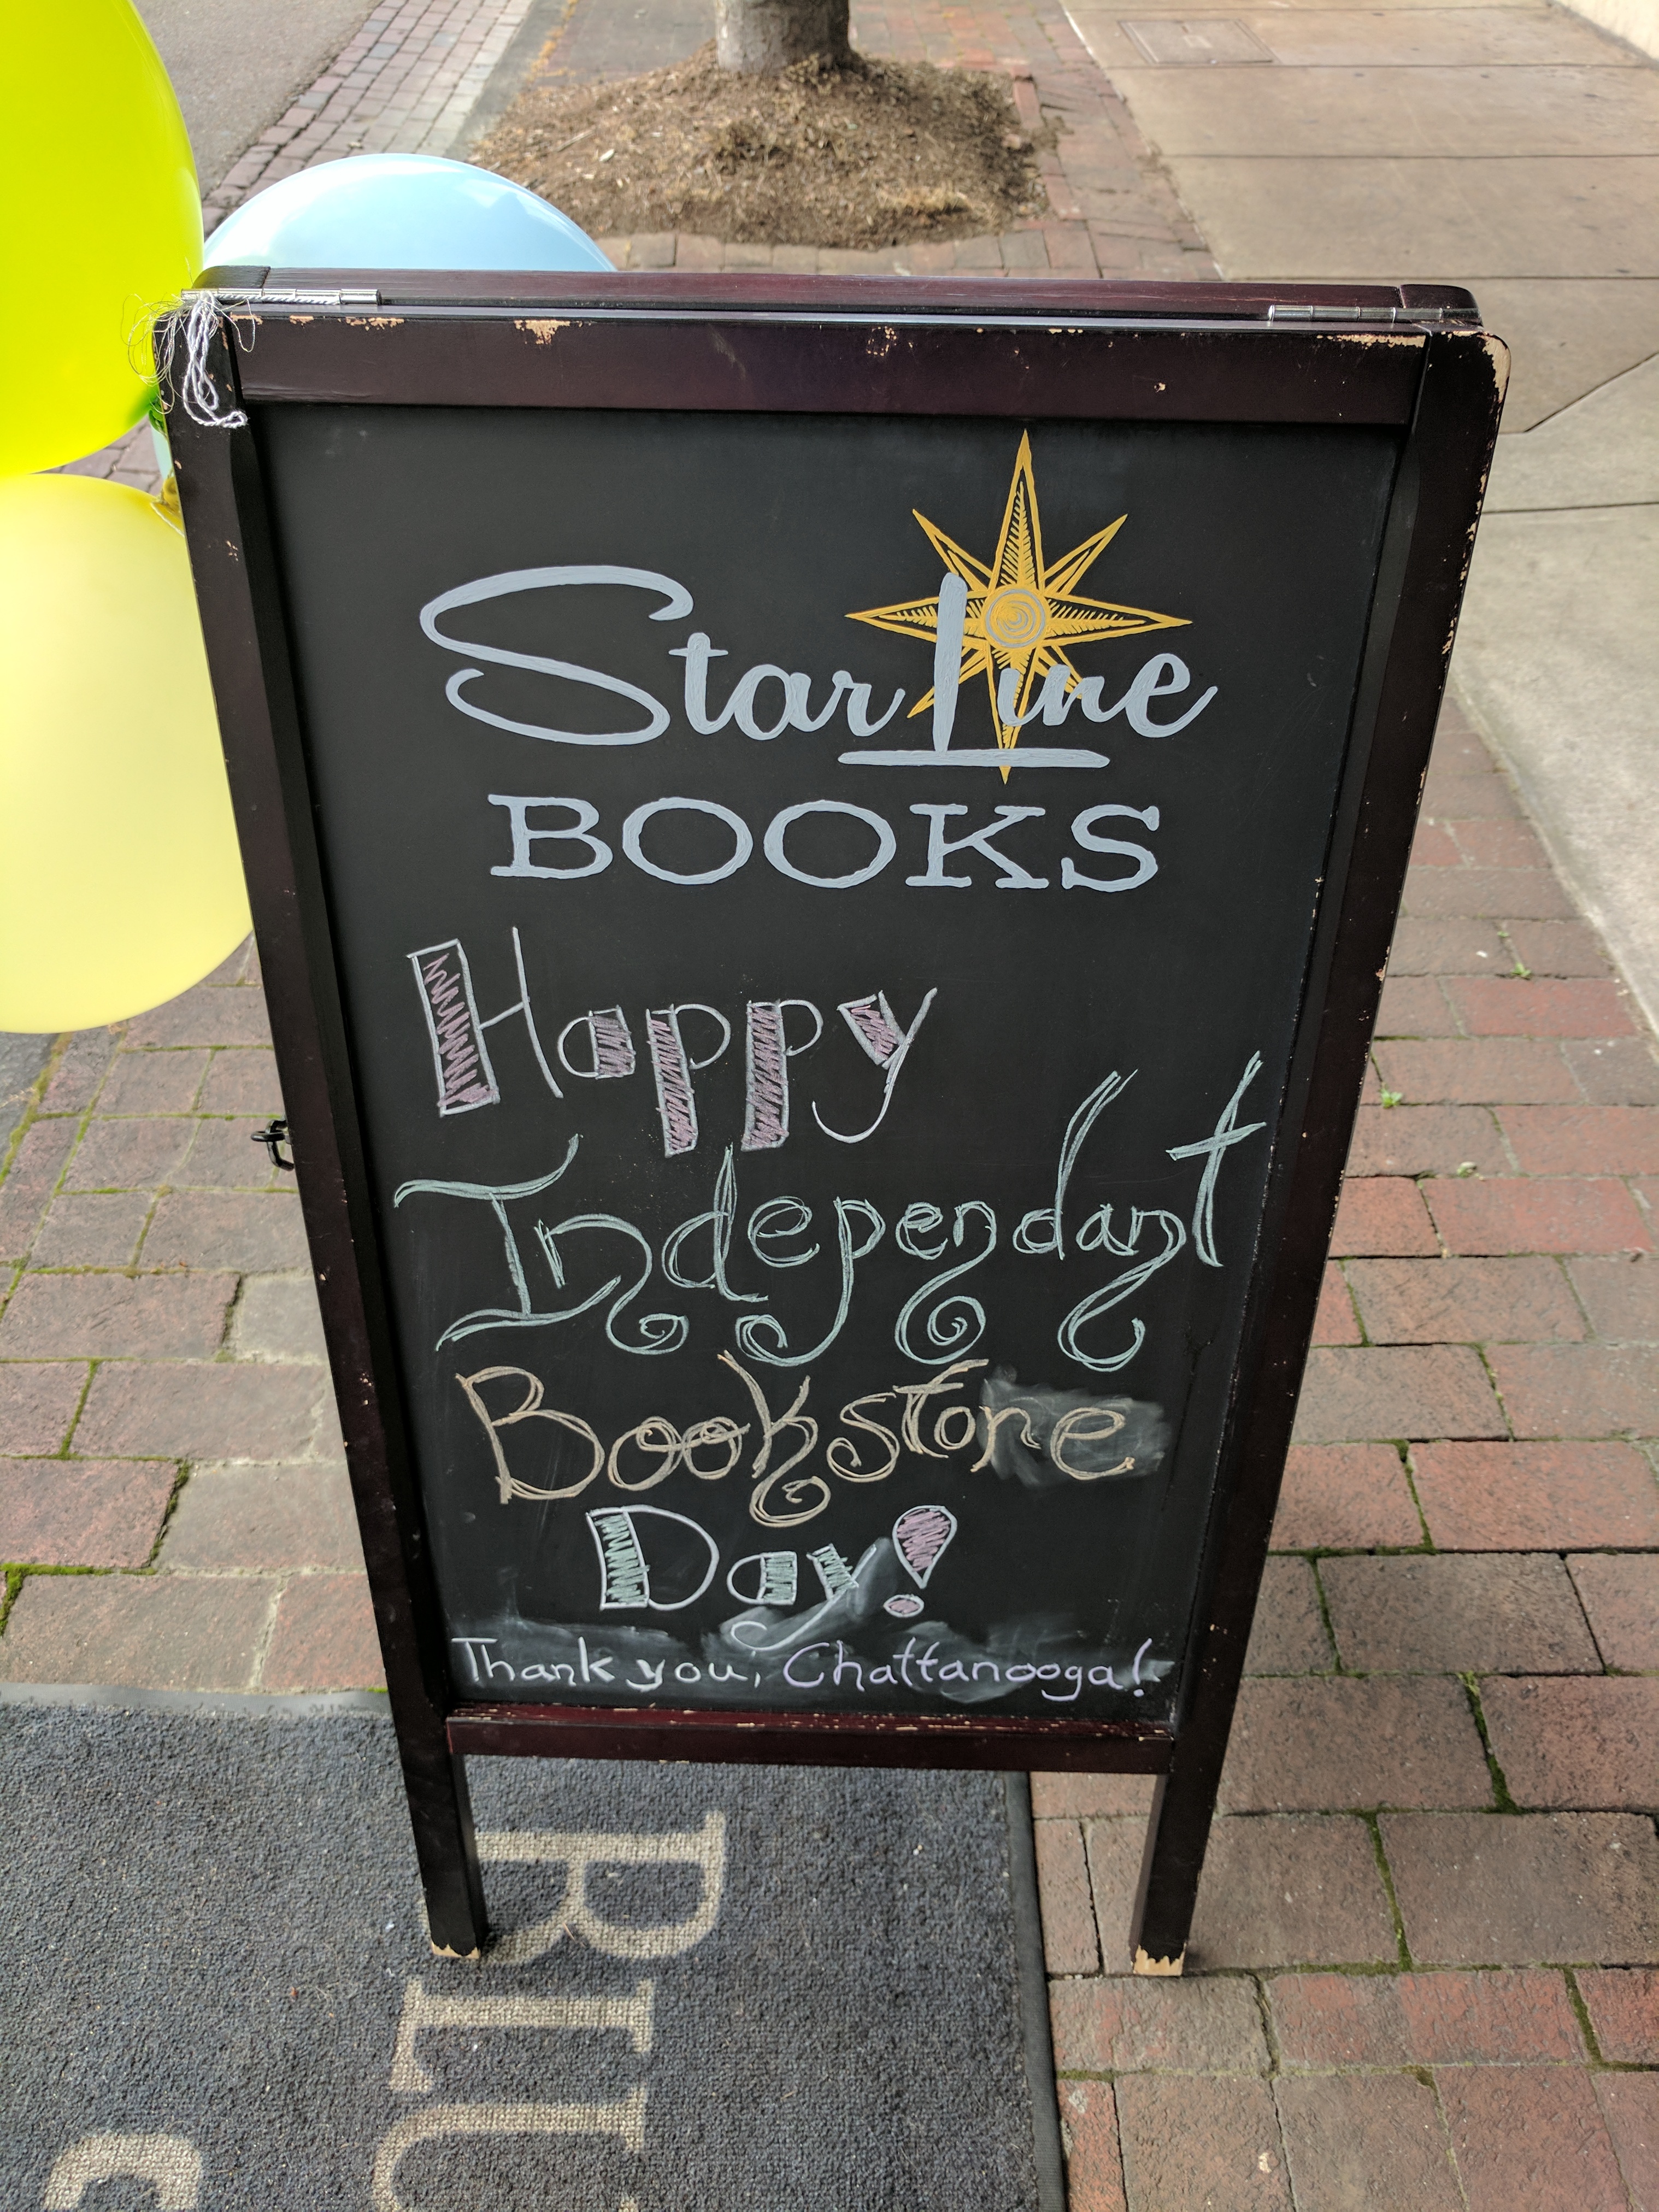 Star Line
BOOKS
Happy
Independant
Bookstore
Day!
Thank you, Chattanooga!